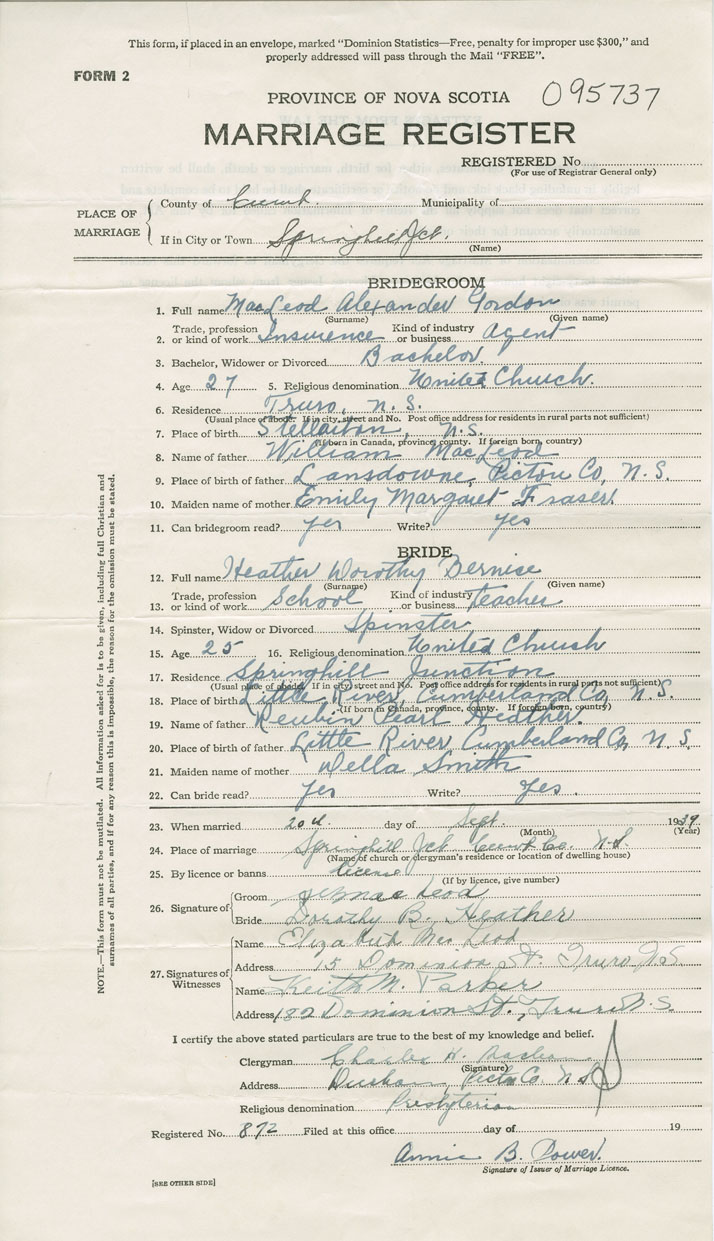 This form, if placed in an envelope, marked "Dominion Statistics—Free, penalty for improper use $300," and
properly addressed will pass through the Mail "FREE".
FORM 2
PROVINCE OF NOVA SCOTIA 095737
MARRIAGE REGISTER
REGISTERED No.
(For use of Registrar General only)
PLACE OF MARRIAGE
County of Cumb. Municipality of
If in City or Town Springhill Jct.
(Name)
BRIDEGROOM
1. Full name MacLeod Alexander Gordon
(Surname) (Given name)
2. Trade, profession or kind of work Insurence Kind of industry or business agent
3. Bachelor, Widower or Divorced Bachelor.
4. Age 27 5. Religious denomination United Church.
6. Residence Truro, N.S.
(Usual place of abode. If in city, street and No. Post office address for residents in rural parts not sufficient)
7. Place of birth Stellarton, N.S.
(If born in Canada, province, county. If foreign born, country)
8. Name of father William MacLeod
9. Place of birth of father Lansdowne, Pictou Co, N.S.
10. Maiden name of mother Emily Margaret Fraser.
11. Can bridegroom read? yes Write? yes
BRIDE
12. Full name Heather Dorothy Bernice
(Surname) (Given name)
13. Trade, profession or kind of work School Kind of industry or business teacher
14. Spinster, Widow or Divorced Spinster
15. Age 25 16. Religious denomination United Church
17. Residence Springhill Junction
(Usual place of abode. If in city, street and No. Post office address for residents in rural parts not sufficient)
18. Place of birth Little River, Cumberland Co, N.S.
(If born in Canada, province, county. If foreign born, country)
19. Name of father Reubin Pearl Heather.
20. Place of birth of father Little River Cumberland Co, N.S.
21. Maiden name of mother Della Smith
22. Can bride read? yes Write? yes.
23. When married 20th day of Sept. 1939
(Month) (Year)
24. Place of marriage Springhill Jct Cumb Co. N.S.
(Name of church or clergyman's residence or location of dwelling house)
25. By licence or banns license
(If by licence, give number)
26. Signature of
Groom MacLeod
Bride Dorothy B. Heather
27. Signatures of Witnesses
Name Elizabeth MacLeod
Address 15 Dominion St. Truro N.S.
Name Keith M. Parker
Address 182 Dominion St., Truro N.S.
I certify the above stated particulars are true to the best of my knowledge and belief.
Clergyman Charles H.
(Signature)
Address Durham, Pictou Co. N.S.
Religious denomination Presbyterian
Registered No. 872 Filed at this office day of 19
Annie B. Power.
Signature of Issuer of Marriage Licence.
[SEE OTHER SIDE]
NOTE.—This form must not be mutilated. All information asked for is to be given, including full Christian and
surnames of all parties, and if for any reason this is impossible, the reason for the omission must be stated.